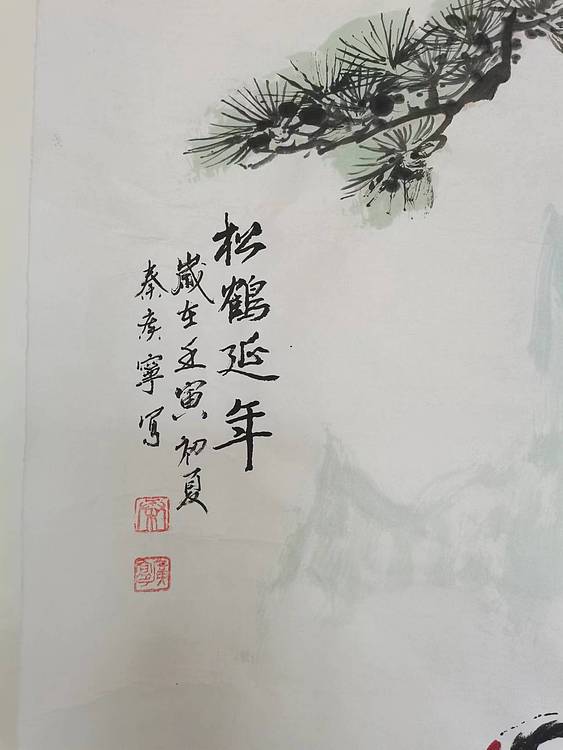 松鶴延年
歲在壬寅初夏
秦寧写